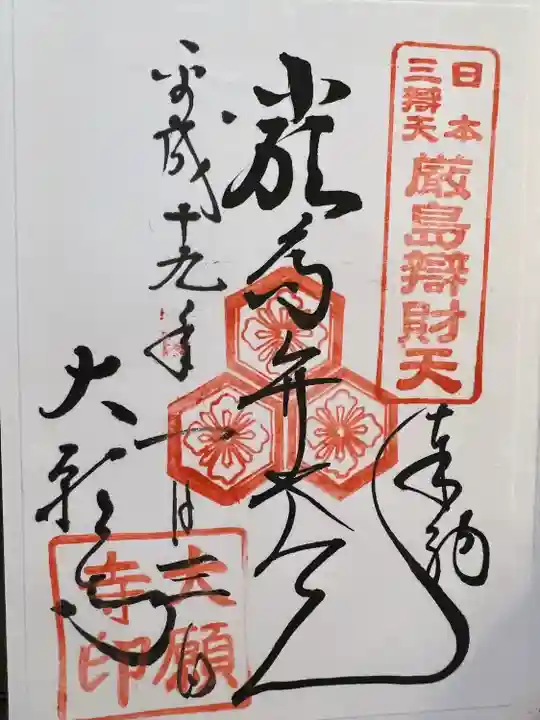 日本
三辯天
厳島辯財天
奉納
厳島弁天
平成十九年十一月三日
大願寺
大願
寺印